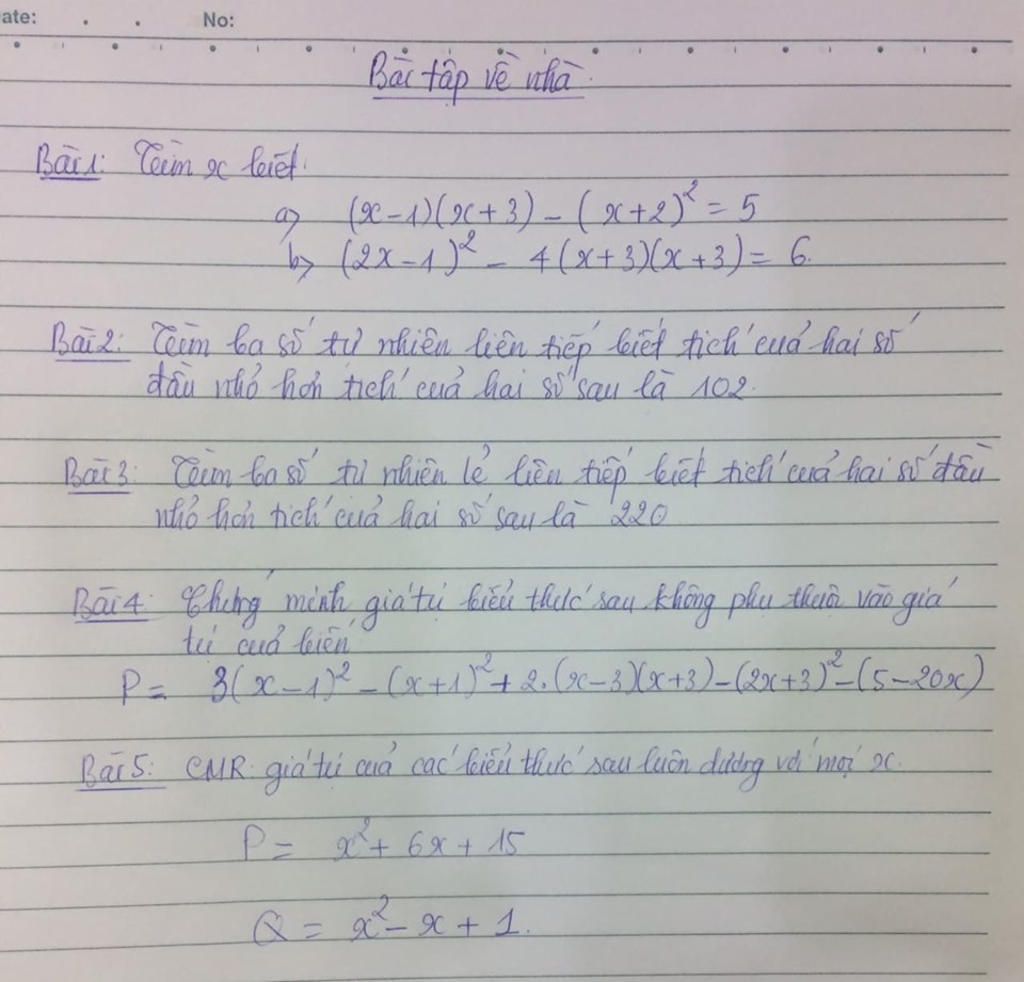 ate: . . No:
Bài tập về nhà.
Bài 1: Tìm x biết.
a) (x-1)(x+3) - (x+2)² = 5
b) (2x-1)² - 4(x+3)(x+3) = 6.
Bài 2: Tìm ba số tự nhiên liên tiếp biết tích của hai số
đầu nhỏ hơn tích của hai số sau là 102.
Bài 3: Tìm ba số tự nhiên lẻ liên tiếp biết tích của hai số đầu
nhỏ hơn tích của hai số sau là 220
Bài 4: Chứng minh giá trị biểu thức sau không phụ thuộc vào giá
trị của biến
P = 3(x-1)² - (x+1)² + 2.(x-3)(x+3) - (2x+3)² - (5-20x)
Bài 5: CMR giá trị của các biểu thức sau luôn dương với mọi x.
P = x² + 6x + 15
Q = x² - x + 1.